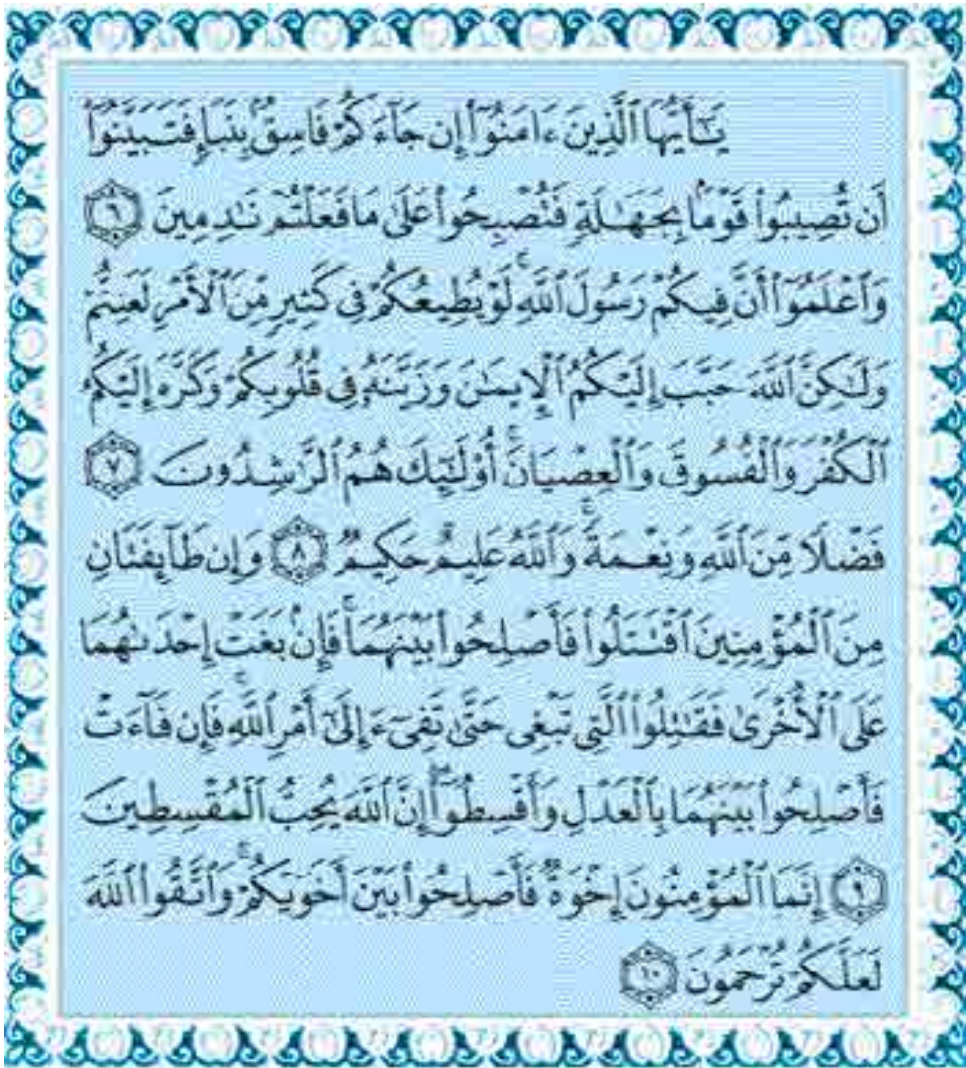 يَـٰٓأَيُّهَا ٱلَّذِينَ ءَامَنُوٓا۟ إِن جَآءَكُمْ فَاسِقٌۢ بِنَبَإٍ فَتَبَيَّنُوٓا۟
أَن تُصِيبُوا۟ قَوْمًۢا بِجَهَـٰلَةٍ فَتُصْبِحُوا۟ عَلَىٰ مَا فَعَلْتُمْ نَـٰدِمِينَ ٦
وَٱعْلَمُوٓا۟ أَنَّ فِيكُمْ رَسُولَ ٱللَّهِ ۚ لَوْ يُطِيعُكُمْ فِى كَثِيرٍ مِّنَ ٱلْأَمْرِ لَعَنِتُّمْ
وَلَـٰكِنَّ ٱللَّهَ حَبَّبَ إِلَيْكُمُ ٱلْإِيمَـٰنَ وَزَيَّنَهُۥ فِى قُلُوبِكُمْ وَكَرَّهَ إِلَيْكُمُ
ٱلْكُفْرَ وَٱلْفُسُوقَ وَٱلْعِصْيَانَ ۚ أُو۟لَـٰٓئِكَ هُمُ ٱلرَّٰشِدُونَ ٧
فَضْلًا مِّنَ ٱللَّهِ وَنِعْمَةً ۚ وَٱللَّهُ عَلِيمٌ حَكِيمٌ ٨ وَإِن طَآئِفَتَانِ
مِنَ ٱلْمُؤْمِنِينَ ٱقْتَتَلُوا۟ فَأَصْلِحُوا۟ بَيْنَهُمَا ۖ فَإِنۢ بَغَتْ إِحْدَىٰهُمَا
عَلَى ٱلْأُخْرَىٰ فَقَـٰتِلُوا۟ ٱلَّتِى تَبْغِى حَتَّىٰ تَفِىٓءَ إِلَىٰٓ أَمْرِ ٱللَّهِ ۚ فَإِن فَآءَتْ
فَأَصْلِحُوا۟ بَيْنَهُمَا بِٱلْعَدْلِ وَأَقْسِطُوٓا۟ ۖ إِنَّ ٱللَّهَ يُحِبُّ ٱلْمُقْسِطِينَ
٩ إِنَّمَا ٱلْمُؤْمِنُونَ إِخْوَةٌ فَأَصْلِحُوا۟ بَيْنَ أَخَوَيْكُمْ ۚ وَٱتَّقُوا۟ ٱللَّهَ
لَعَلَّكُمْ تُرْحَمُونَ ١٠